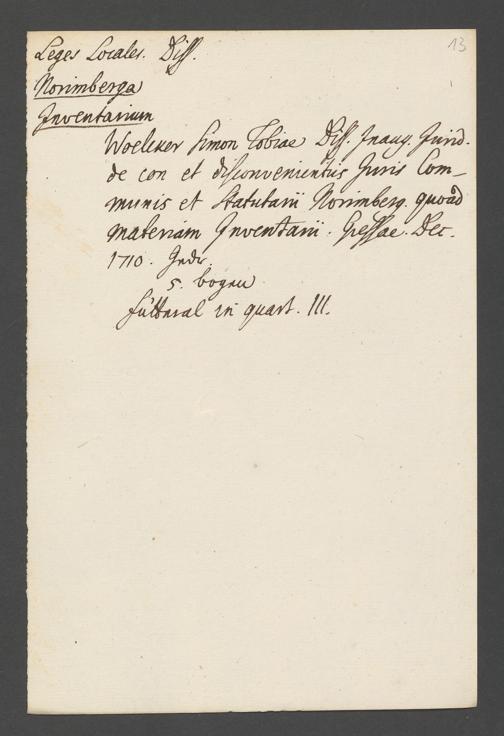 13
Leges Locales. Diss.
Norimberga
Inventarium
Woelcker Simon Tobiae Diss. Inaug. Jurid.
de con et disconvenientiis Juris Com-
munis et Statutarii Norimberg. quoad
materiam Inventarii. Gießae. Dec.
1710.
5. bogen
futteral in quart. III.